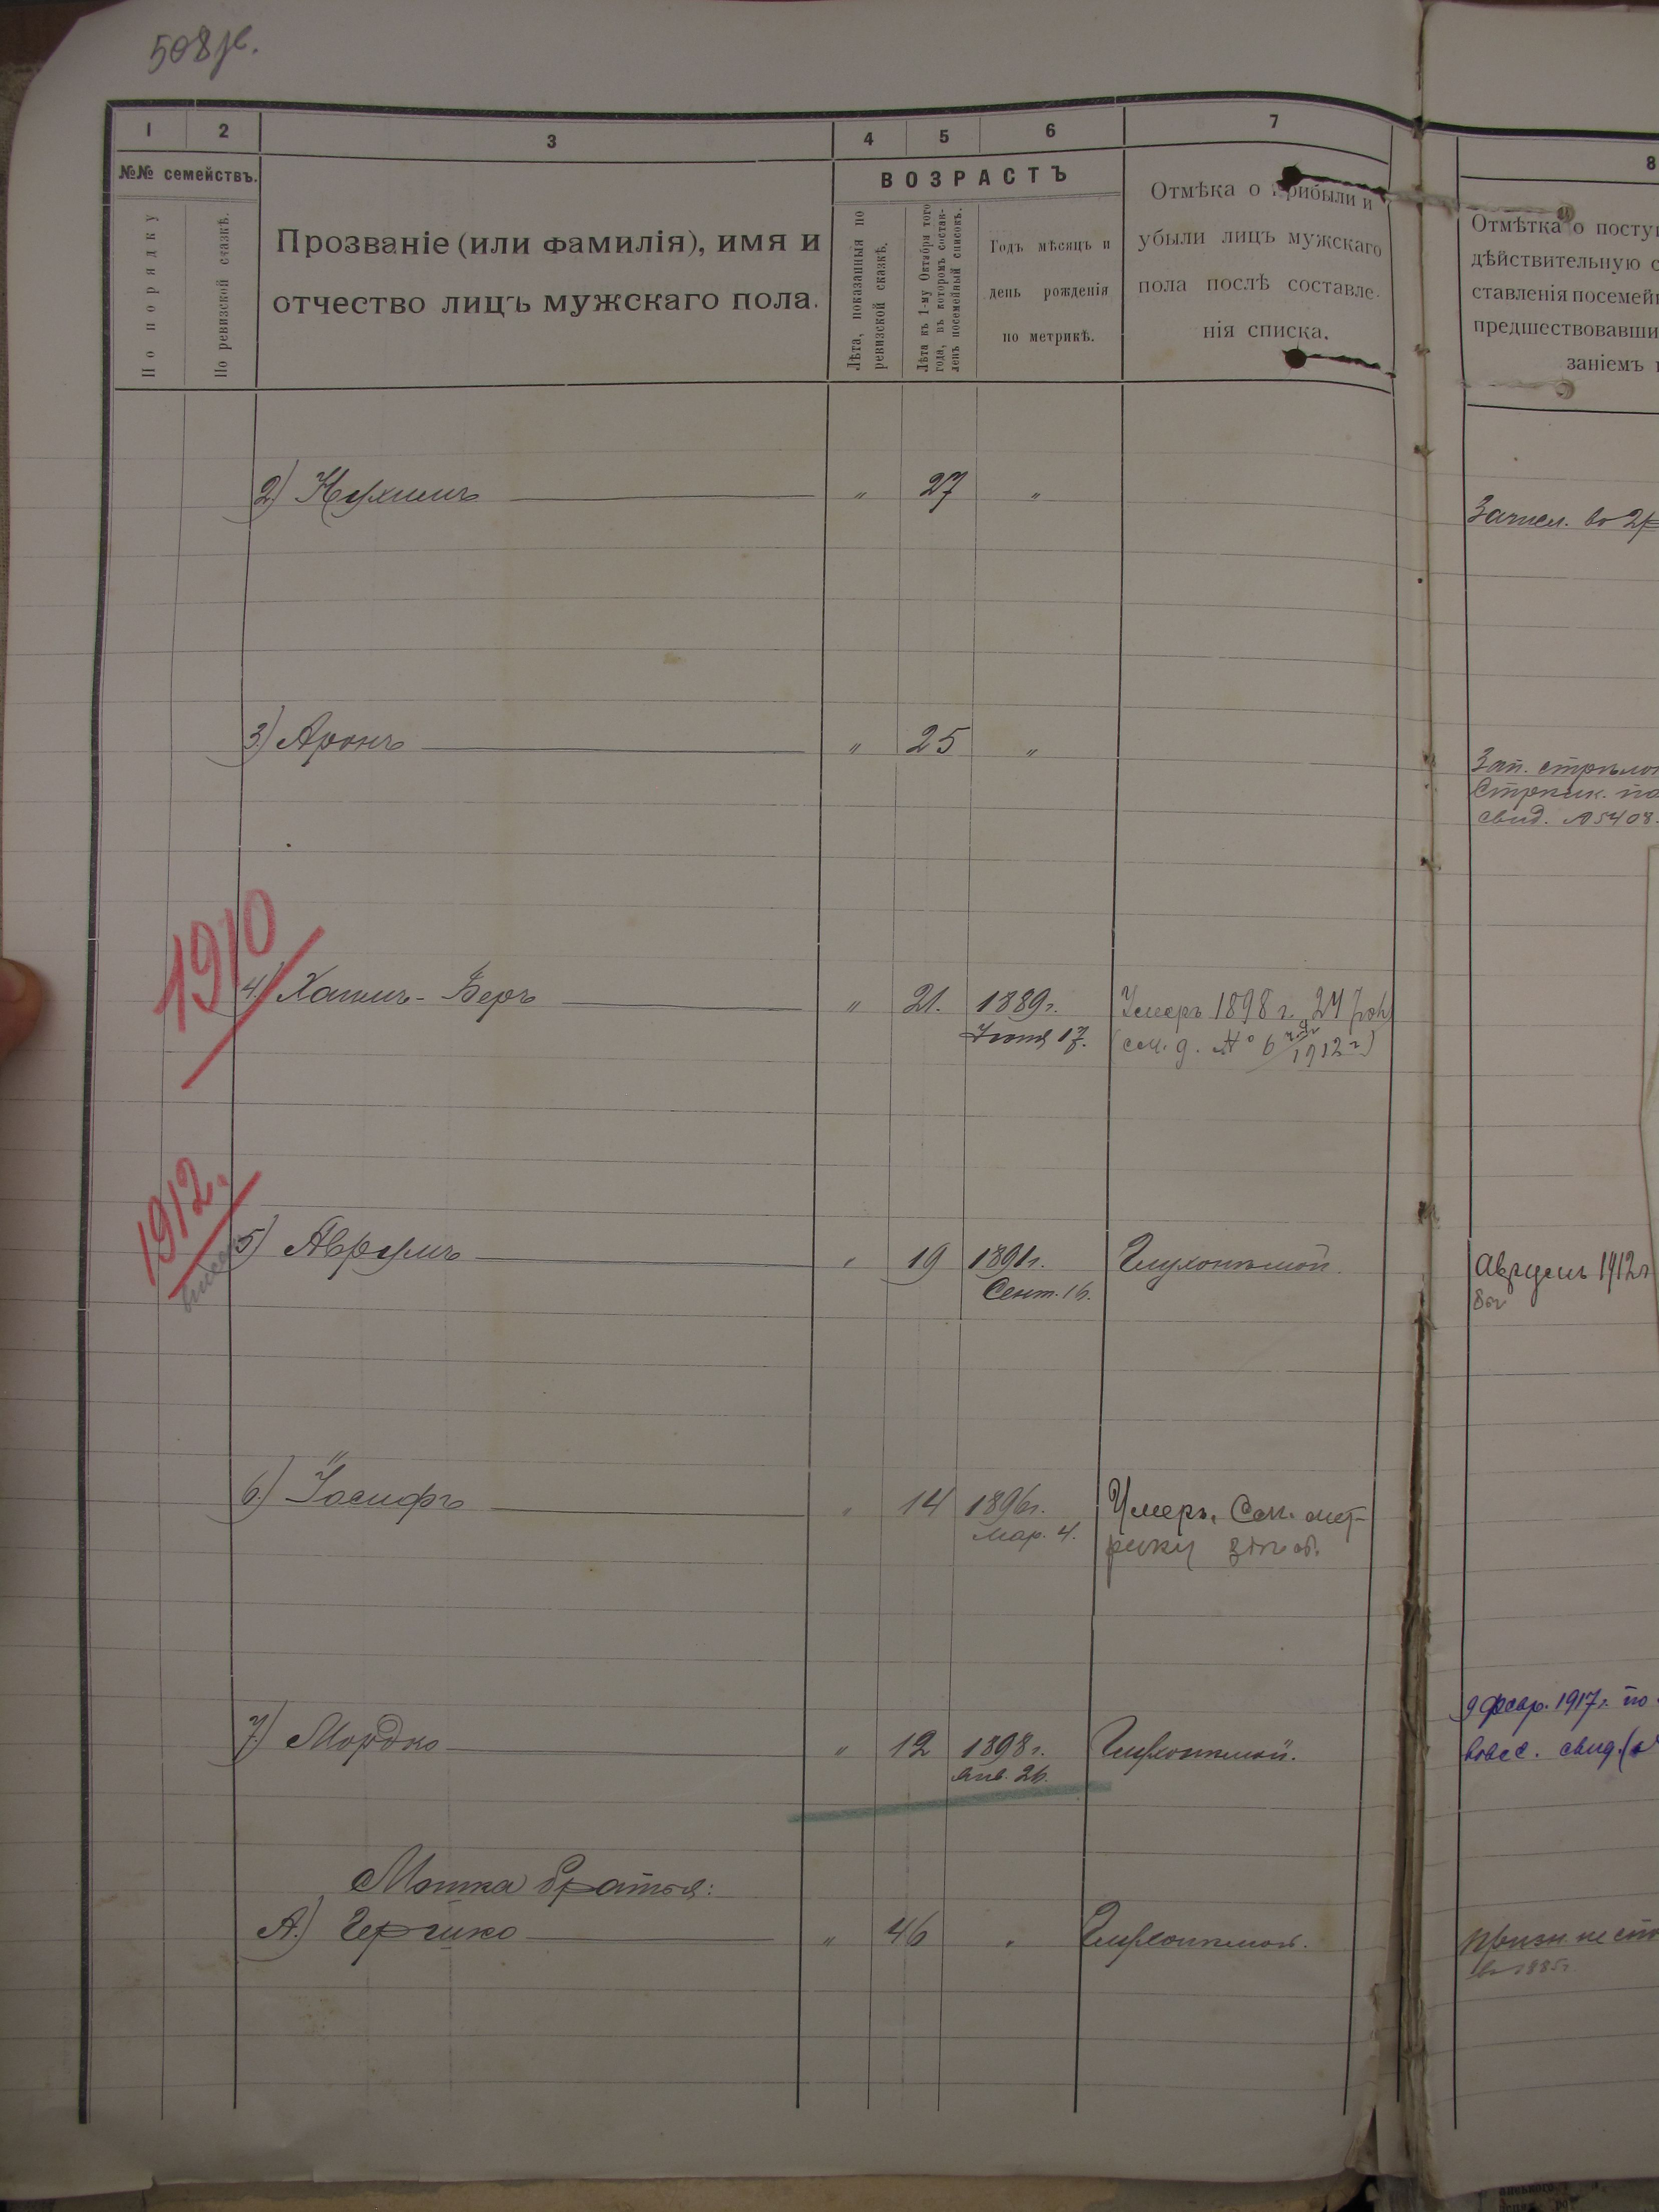 1 2 3 4 5 6 7 8
№№ семействъ.
По порядку
По ревизской сказкѣ.
Прозваніе (или фамилія), имя и
отчество лицъ мужскаго пола.
ВОЗРАСТЪ
Лѣта, показанныя по
ревизской сказкѣ.
Лѣта къ 1-му Октября того
года, въ которомъ состав-
ленъ посемейный списокъ.
Годъ мѣсяцъ и
день рожденія
по метрикѣ.
Отмѣка о прибыли и
убыли лицъ мужскаго
пола послѣ составле-
нія списка.
Отмѣтка о посту
дѣйствительную с
ставленія посемей
предшествовавши
заніемъ
2) Нухимъ " 27 "
Зачисл. во 2
3) Аронъ " 25 "
Зап.
свид. №5408.
1910
4.) Хаимъ-Беръ " 21. 1889г. Умеръ 1898 г. 24
Іюня 17. (см. д. № 6 1912 г)
1912.
5) Аврумъ " 19 1891г. Глухонѣмой.
Сент. 16.
Аврумъ 1912г
6.) Іосифъ " 14 1896г. Умеръ. См. мет-
Мар. 4. рику
7.) Мордко " 12 1898г. Глухонѣмой.
Янв. 26.
9 февр. 1917г. по
свид.
Мошка братья:
А.) Гершко " 46 " Глухонѣмой.